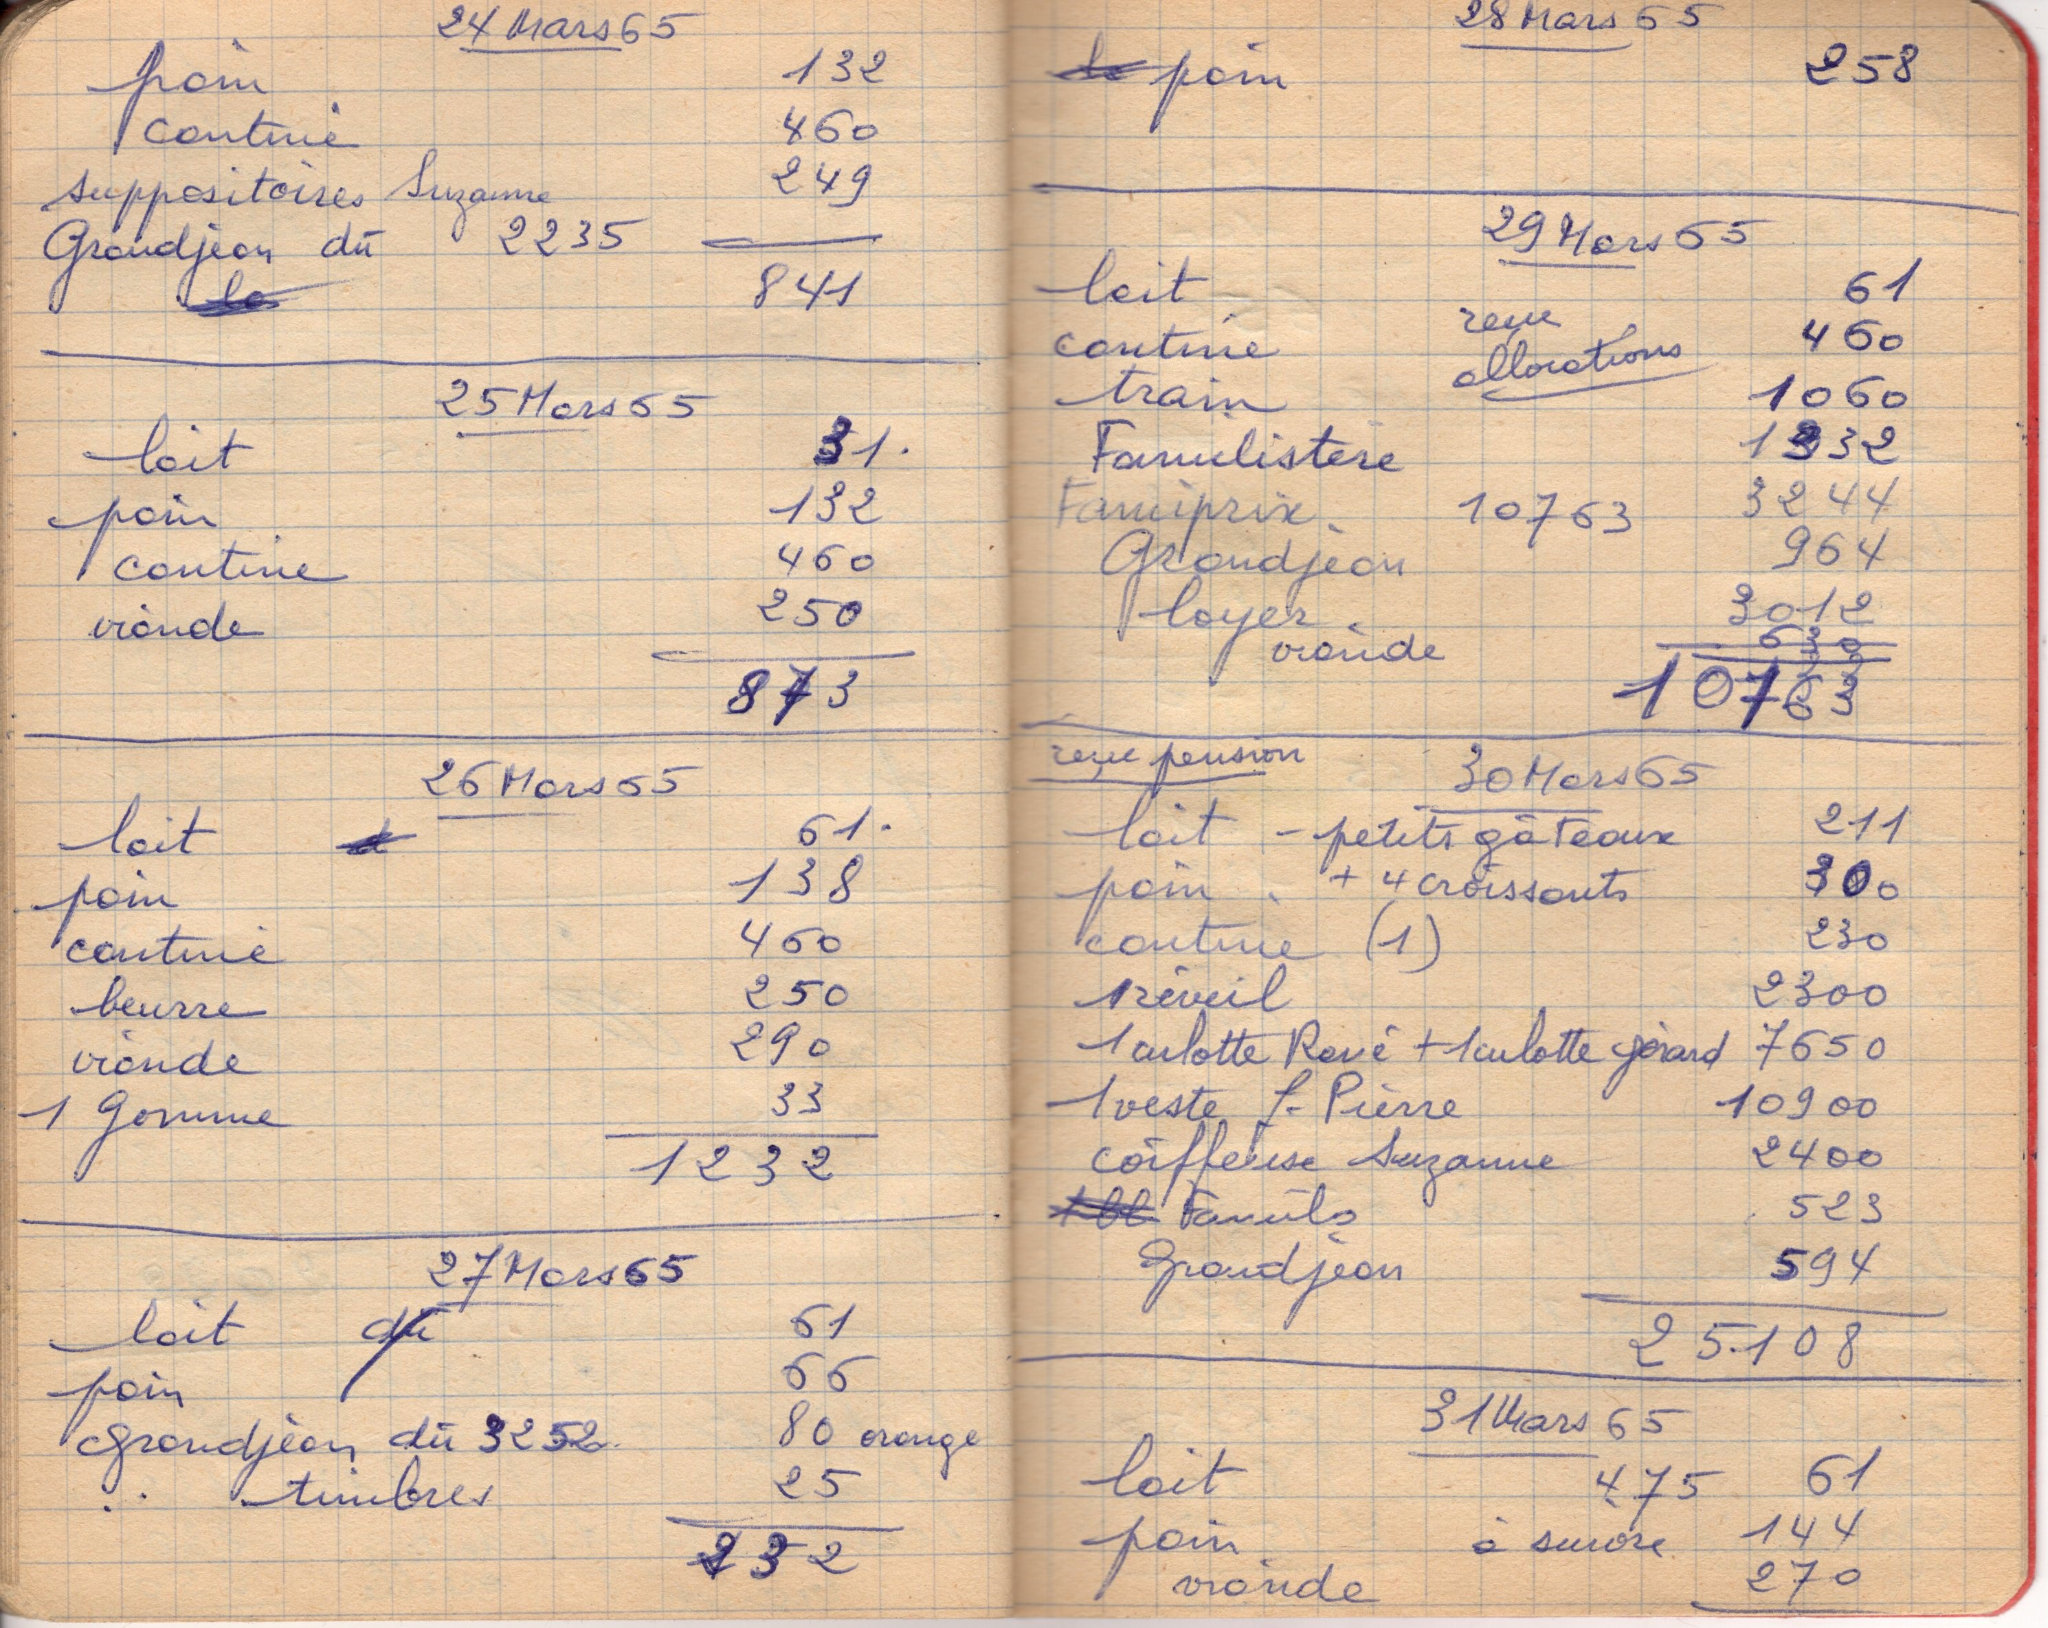 24 Mars 65
pain 132
cantine 460
suppositoires Suzanne 249
Grandjean dû 2235
841
25 Mars 65
lait 31.
pain 132
cantine 460
viande 250
873
26 Mars 65
lait 61.
pain 138
cantine 460
beurre 250
viande 290
1 Gomme 33
1232
27 Mars 65
lait dû 61
pain 66
Grandjean dû 3252 80 orange
timbres 25
232
28 Mars 65
pain 258
29 Mars 65
lait 61
cantine reçu 460
allocations
train 1060
Familistère 1332
Famiprix 10763 3244
Grandjean 964
loyer 3012
viande 630
10763
reçu pension 30 Mars 65
lait - petits gâteaux 211
pain + 4 croissants 300
cantine (1) 230
1 réveil 2300
1 culotte René + 1 culotte gérard 7650
1 veste J. Pierre 10900
coiffeuse Suzanne 2400
Famils 523
Grandjean 594
25.108
31 Mars 65
lait 475 61
pain à suivre 144
viande 270